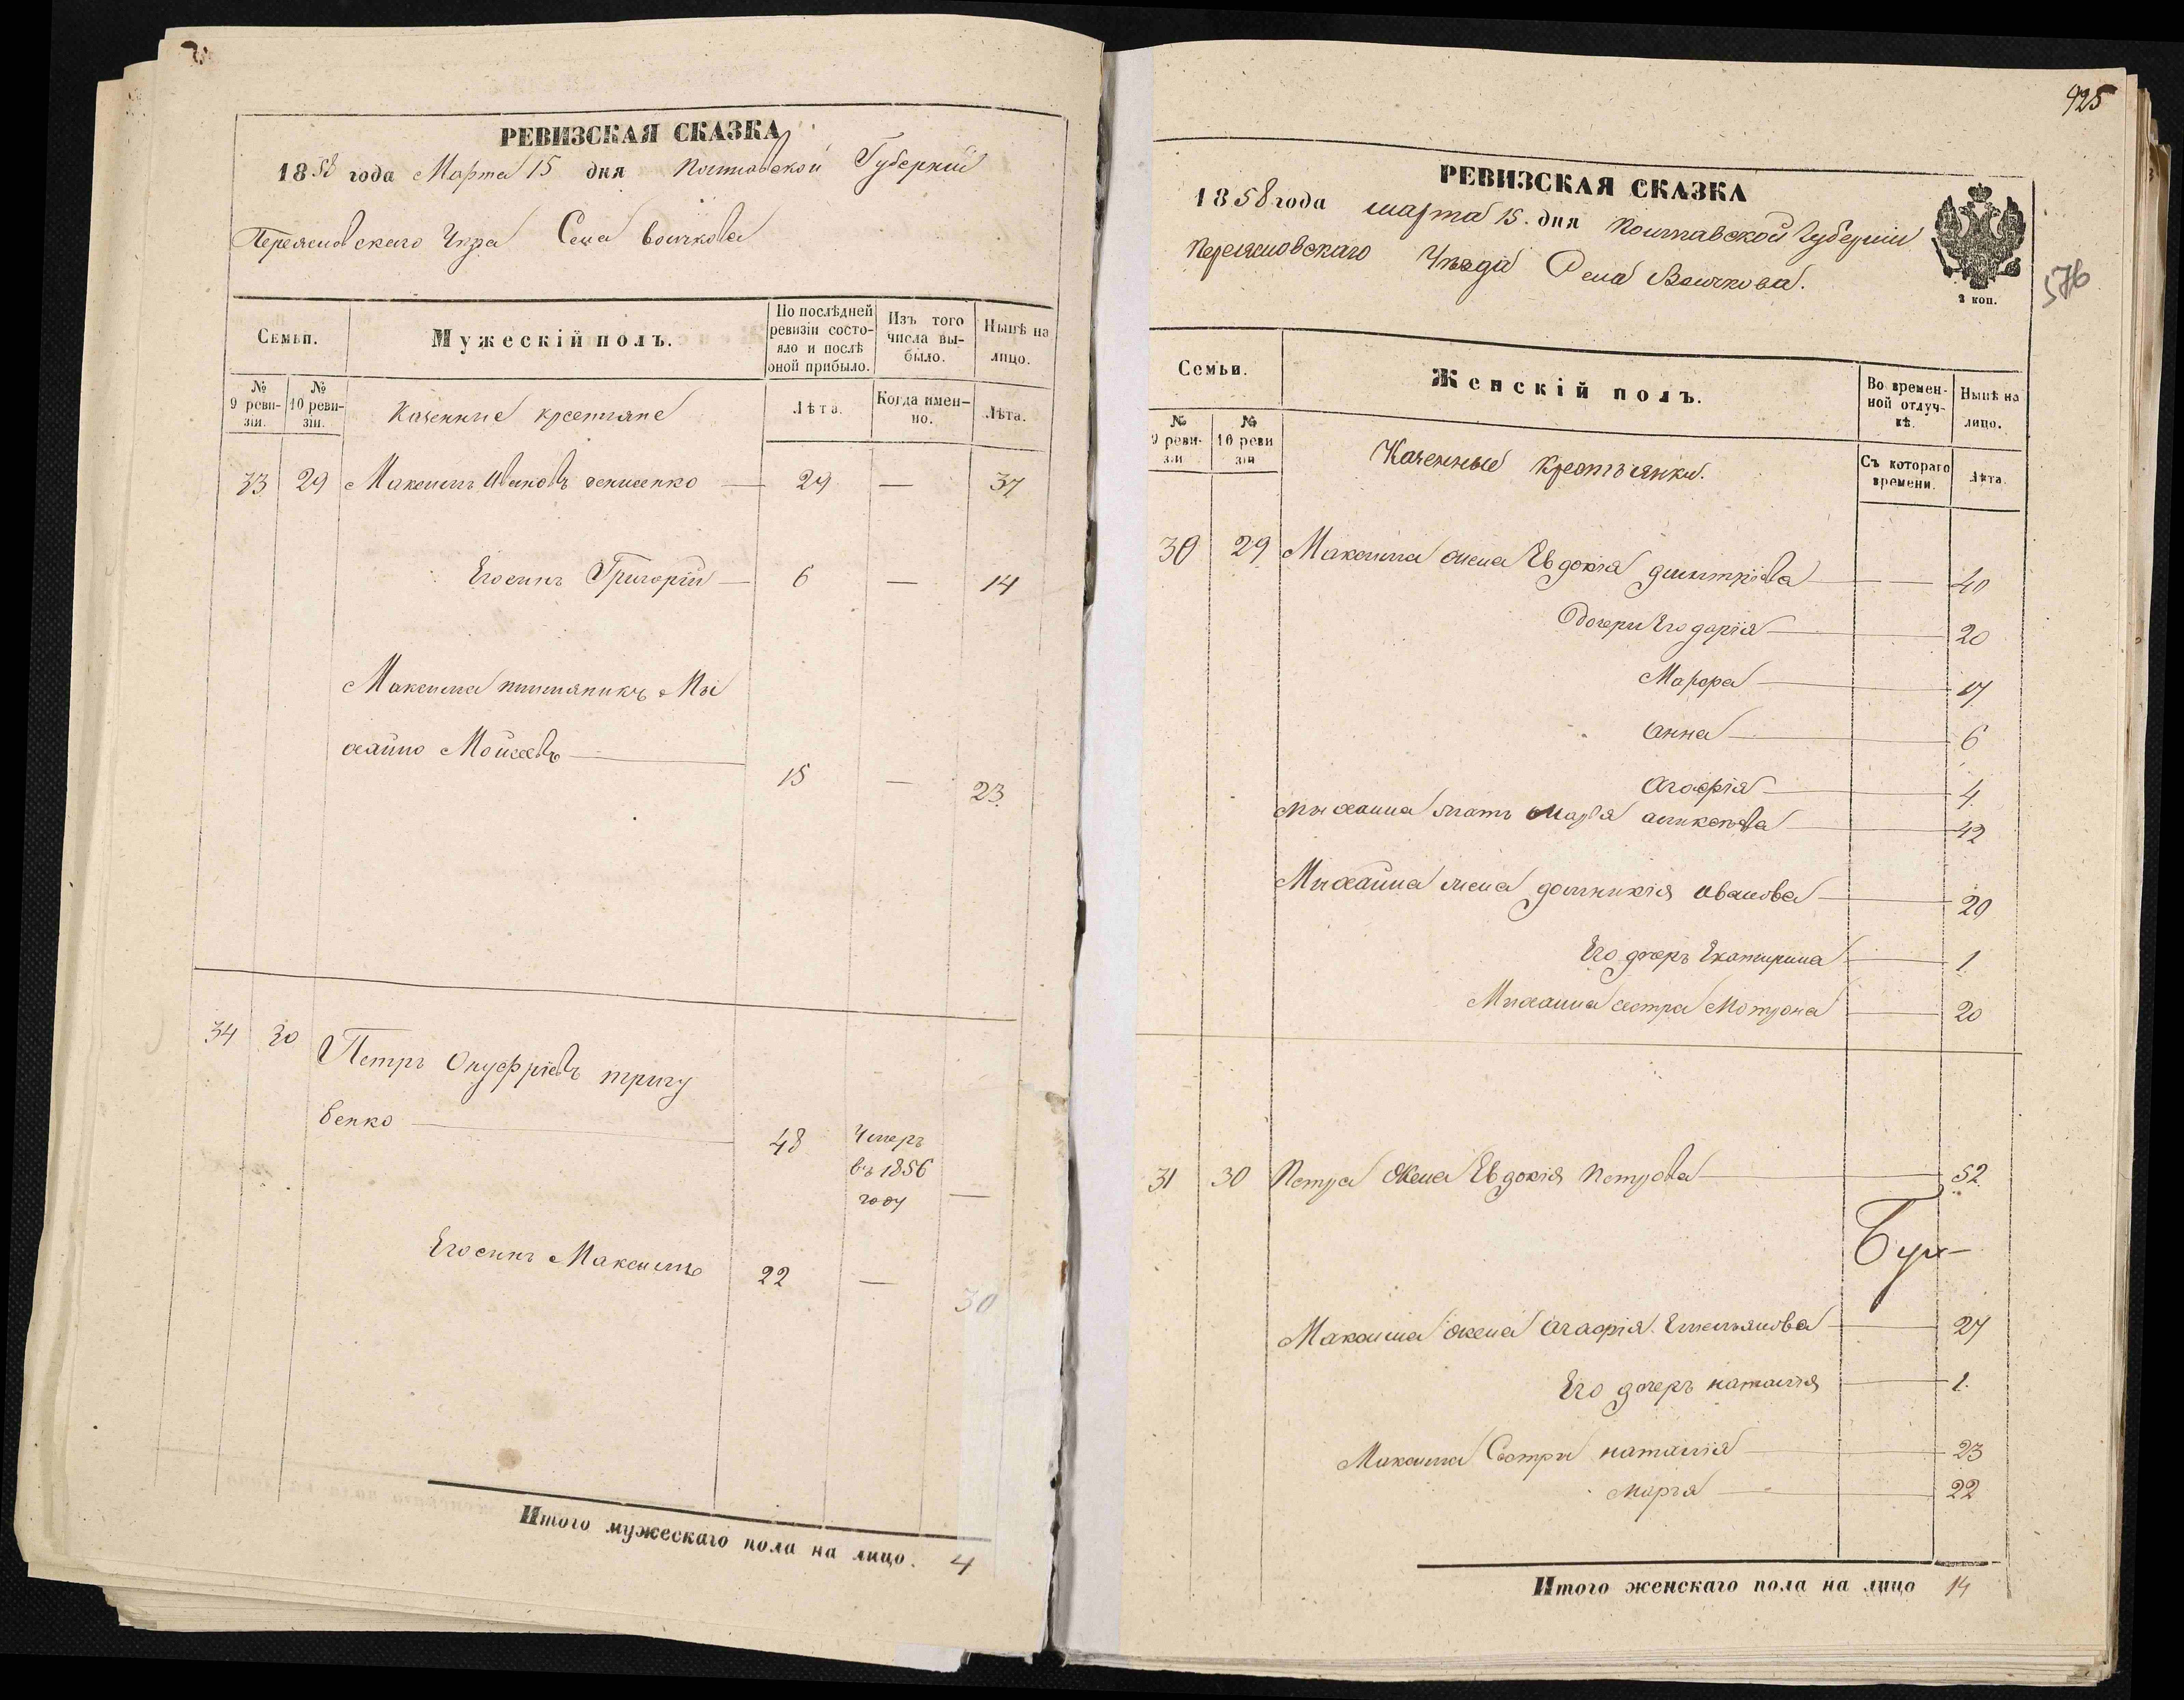 РЕВИЗСКАЯ СКАЗКА
1858 года Марта 15 дня Полтавской Губерніи
Переяславскаго Уезда Села Войткова
Семьи.
Мужескій полъ.
По послѣдней ревизіи состояло и послѣ оной прибыло.
Изъ того числа выбыло.
Нынѣ на лицо.
№ 9 ревизіи.
№ 10 ревизіи.
Казенные крестяне
Лѣта.
Когда именно.
Лѣта.
33 29 Максимъ Ивановъ 29 — 37
Его сынъ Григорій — 6 — 14
Максима племяникъ Ми
хайло Мойсеевъ 15 — 23
34 30 Петръ Онуфріевъ тригу
бенко 48 Умеръ
въ 1856
году —
Его сынъ Максимъ 22 — 30
Итого мужескаго пола на лицо. 4
925
РЕВИЗСКАЯ СКАЗКА
1858 года марта 15. дня Полтавской Губерніи
Переяславскаго Уезда Села Войткова.
2 коп.
576
Семьи.
Женскій полъ.
Во временной отлучкѣ.
Нынѣ на лицо.
№ 9 ревизіи
№ 10 ревизіи
Казенные Крестъянки.
Съ котораго времени.
Лѣта.
30 29 Максима жена Евдокія дмитріева — — 40
Дочери Его дарія — 20
Марфа — 17
Анна — 6
Агафія — 4
Михаила мать Марія — 42
Михайла жена домникія Иванова — 20
Его дочеръ Екатирина — 1
Михаила сестра Мотрона — 20
31 30 Петра Жена Евдокія Петрова — 52
Максима жена Агафія Емельянова — 27
Его дочеръ наталія — 1.
Максима Сестри наталія — 23
Марія — 22
Итого женскаго пола на лицо 14